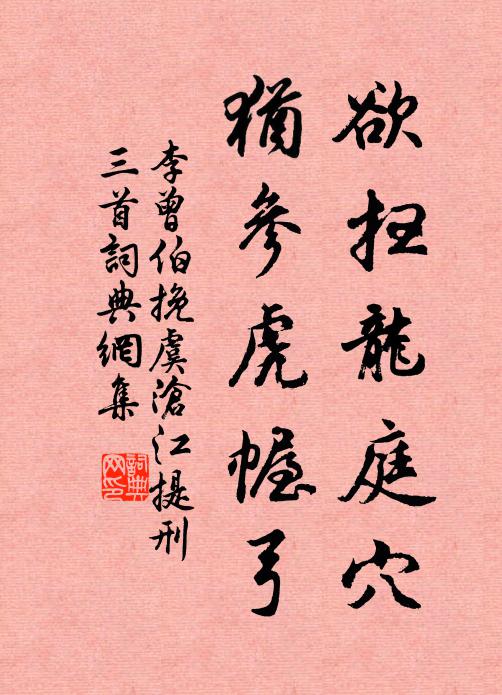 欲扫龍庭穴
猶參虎幄弓
李曾伯挽虞滄江提刑
三首詞典網集
詞典
网印